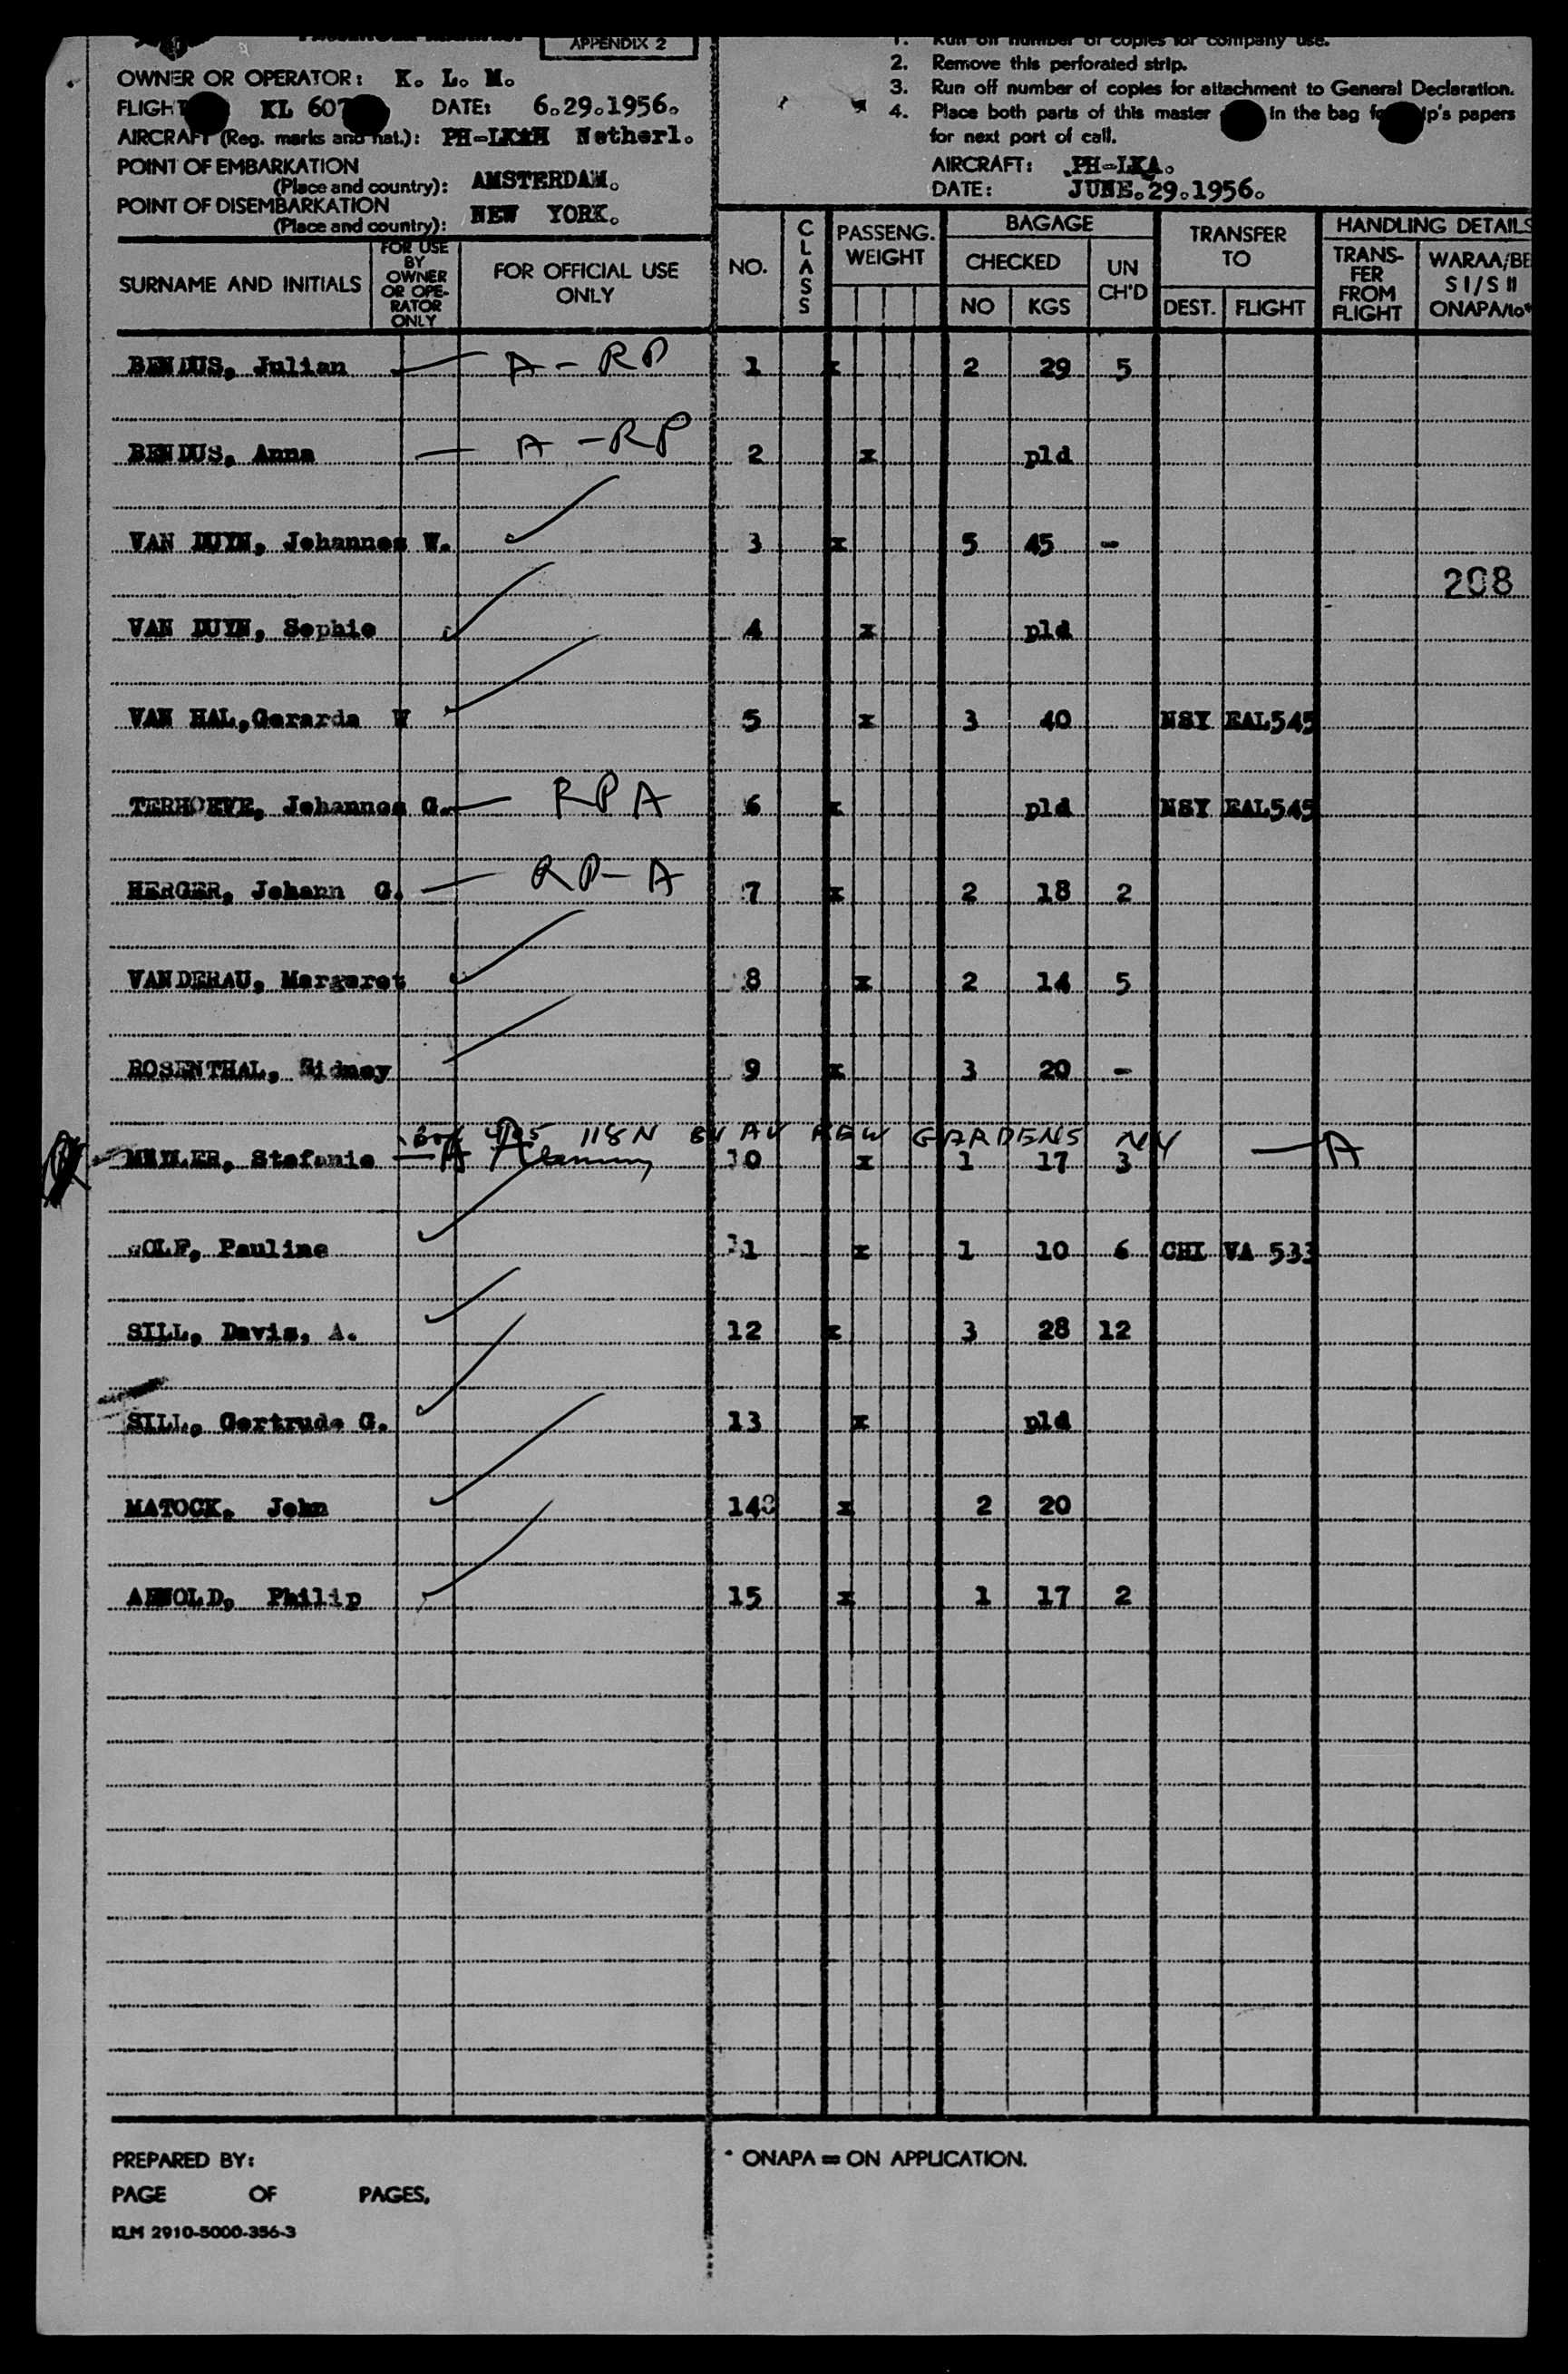 APPENDIX 2
OWNER OR OPERATOR: K. L. M.
FLIGHT KL 607 DATE: 6.29.1956.
AIRCRAFT (Reg. marks and nat.): Netherl.
POINT OF EMBARKATION
(Place and country): AMSTERDAM.
POINT OF DISEMBARKATION
(Place and country): NEW YORK.
1. Run off number of copies for company use.
2. Remove this perforated strip.
3. Run off number of copies for attachment to General Declaration.
4. Place both parts of this master in the bag papers
for next port of call.
AIRCRAFT: PH-LKA.
DATE: JUNE.29.1956.
SURNAME AND INITIALS
FOR USE BY OWNER OR OPE-RATOR ONLY
FOR OFFICIAL USE ONLY
NO.
CLASS
PASSENG. WEIGHT
BAGAGE
CHECKED
NO KGS
UN CH'D
TRANSFER TO
DEST. FLIGHT
HANDLING DETAILS
TRANS-FER FROM FLIGHT
WARAA/BE
S I/S II
ONAPA/to*
BENDUS, Julian — A - RP 1 x 2 29 5
BENDUS, Anna — A - RP 2 x pld
VAN DUYN, Johannes W. 3 x 5 45 -
208
VAN DUYN, Sophie 4 x pld
VAN HAL, Gerarda W 5 x 3 40 NSY EAL545
TERHOEVE, Johannes G. — RPA 6 x pld NSY EAL545
HERGER, Johann G. — RP-A 7 x 2 18 2
VANDERAU, Margaret 8 x 2 14 5
ROSENTHAL, Sidney 9 x 3 20 -
118 N AV KEW GARDENS NY
Stefanie — A 10 x 1 17 3 — A
Pauline 11 x 1 10 6 CHI VA 533
SILL, Davis, A. 12 x 3 28 12
SILL, Gertrude G. 13 x pld
MATOCK, John 14 x 2 20
ARNOLD, Philip 15 x 1 17 2
PREPARED BY:
PAGE OF PAGES,
KLM 2910-5000-356-3
* ONAPA = ON APPLICATION.